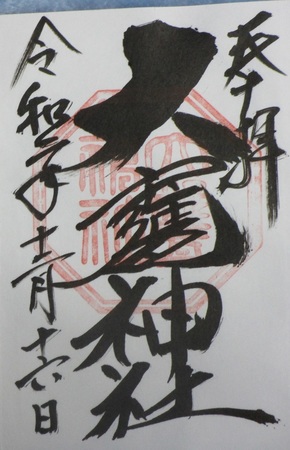 奉拝
大甕神社
令和二年十二月十六日